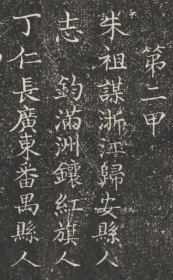 第二甲
朱祖謀浙江歸安縣人
志鈞滿洲鑲紅旗人
丁仁長廣東番禺縣人